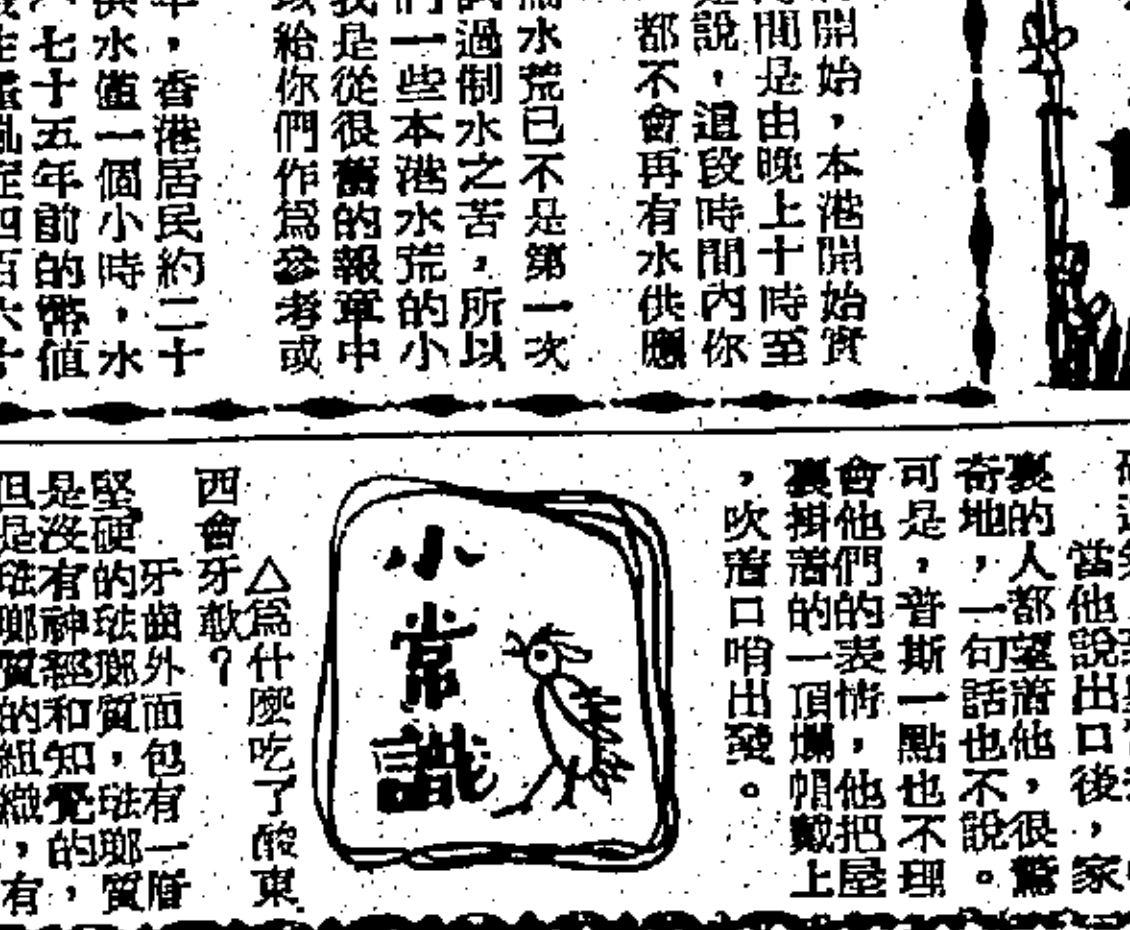 開始，本港開始實
間是由晚上十時至
說，這段時間內你
都不會再有水供應
水荒已不是第一次
過制水之苦，所以
們一些本港水荒的小
我是從很舊的報章中
給你們作爲參考或
，香港居民約二十
供水值一個小時，水
七十五年前的幣值
當他說出口後，家
裏的人都望著他，很驚
奇地，一句話也不說。
可是，普斯一點也不理
會他們的表情，他把屋
裏掛著的一頂爛帽戴上
，吹着口哨出發。
小常識
△爲什麼吃了酸東
西會牙歕？
牙齒外面包有一層
堅硬的琺瑯質，琺瑯質
是沒有神經和知覺的，
但是琺瑯質的組織，有